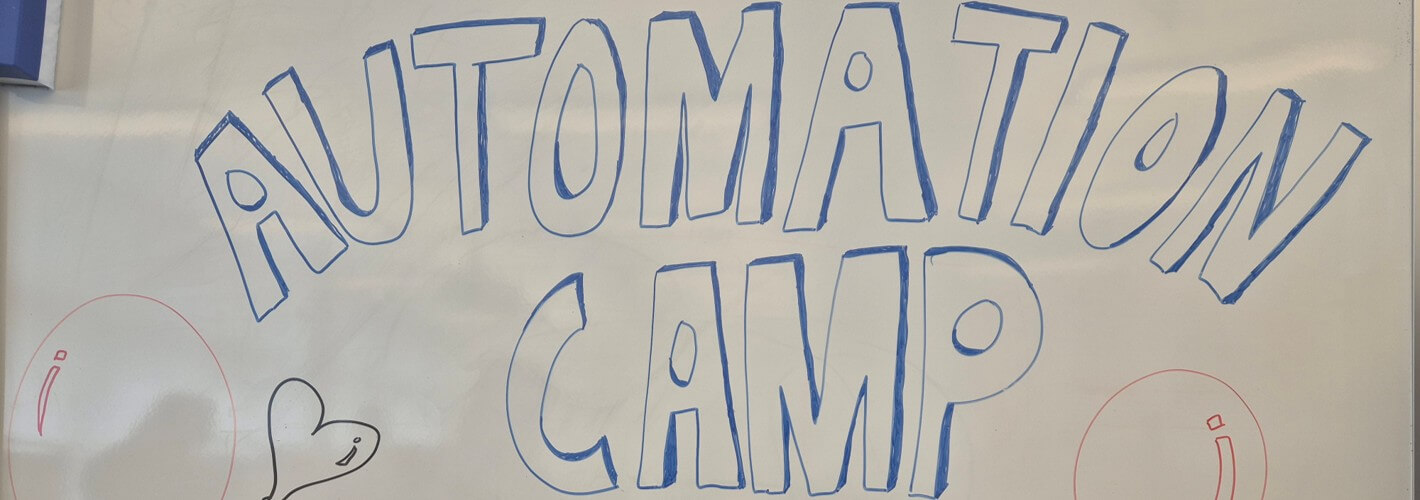 AUTOMATION
CAMP